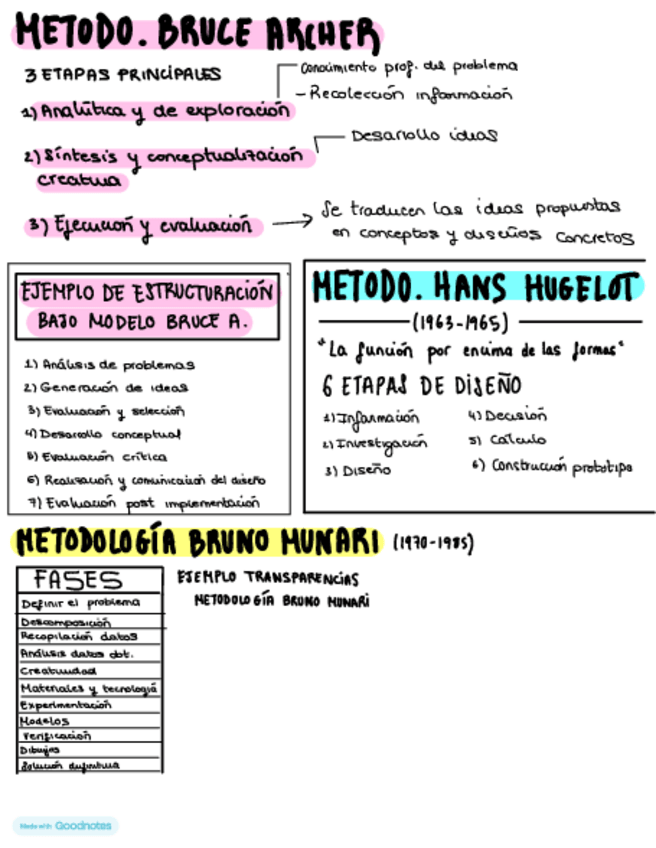 METODO. BRUCE ARCHER
3 ETAPAS PRINCIPALES
Conocimiento prof. del problema
- Recolección información
1) Analítica y de exploración
Desarrollo ideas
2) Síntesis y conceptualización
creativa
3) Ejecución y evaluación
Se traducen las ideas propuestas
en conceptos y diseños concretos
EJEMPLO DE ESTRUCTURACIÓN
BAJO MODELO BRUCE A.
1) Análisis de problemas
2) Generación de ideas
3) Evaluación y selección
4) Desarollo conceptual
5) Evaluación crítica
6) Realización y comunicación del diseño
7) Evaluación post implementación
METODO. HANS HUGELOT
(1963-1965)
"La función por encima de las formas"
6 ETAPAS DE DISEÑO
1) Información
2) Investigación
3) Diseño
4) Decisión
5) Cálculo
6) Construcción prototipo
METODOLOGÍA BRUNO MUNARI (1970-1985)
FASES
Definir el problema
Descomposición
Recopilación datos
Análisis datos obt.
Creatividad
Materiales y tecnología
Experimentación
Modelos
Verificación
Dibujos
Solución definitiva
EJEMPLO TRANSPARENCIAS
METODOLOGÍA BRUNO MUNARI
Made with Goodnotes